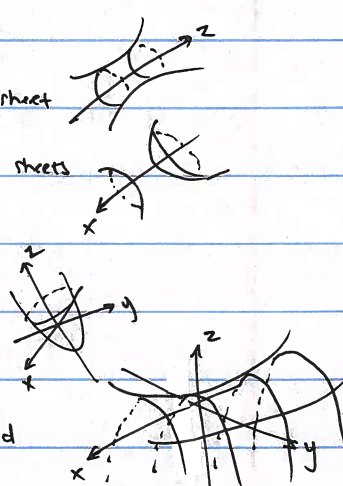 z
sheet
sheets
x
z
y
x
z
d
x
y